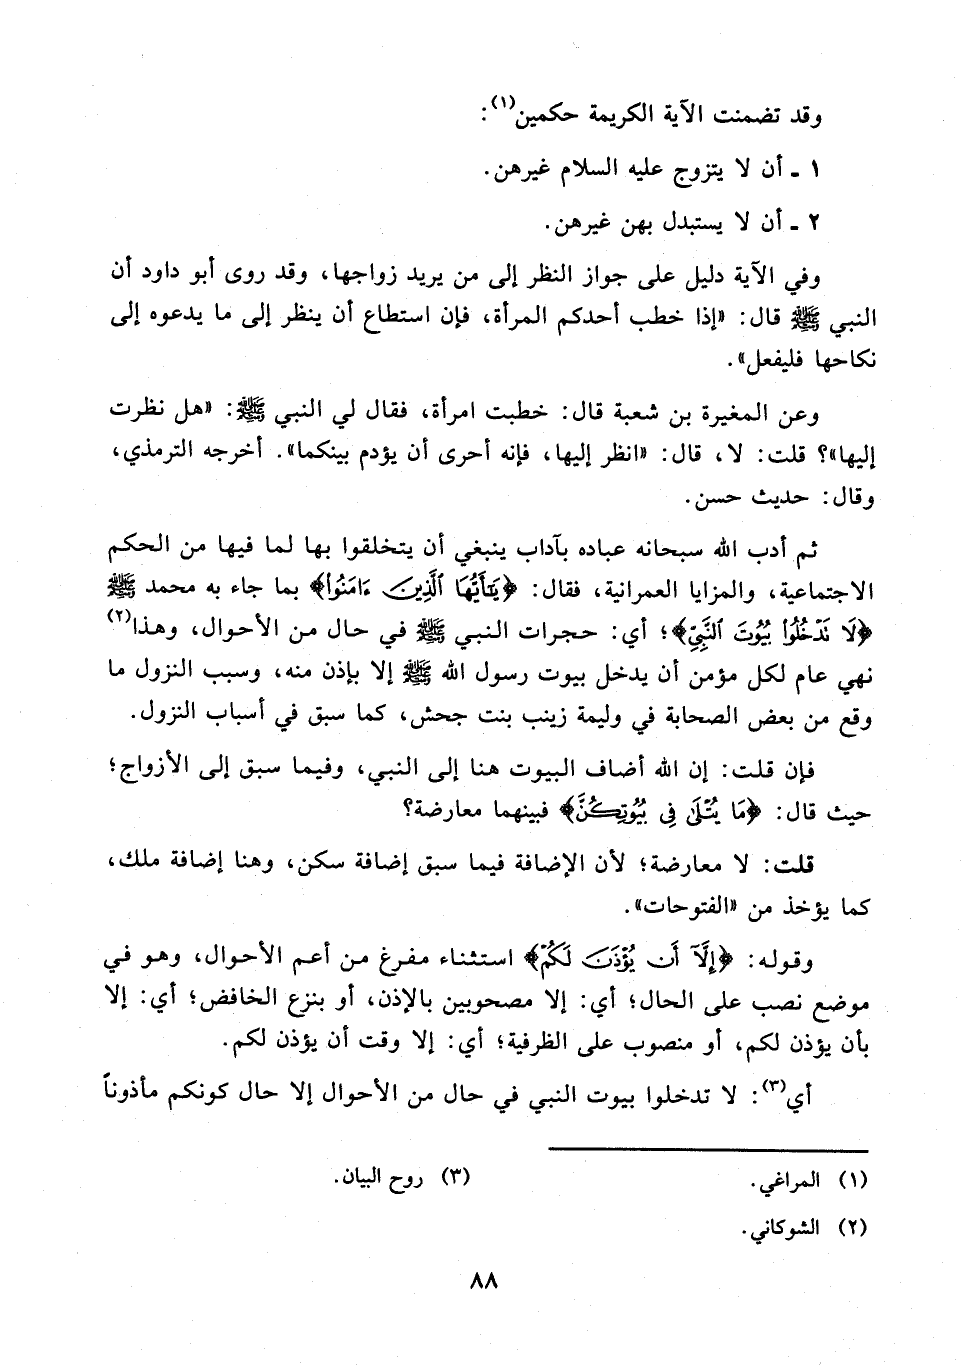 وقد تضمنت الآية الكريمة حكمين(١):
١ ـ أن لا يتزوج عليه السلام غيرهن.
٢ ـ أن لا يستبدل بهن غيرهن.
وفي الآية دليل على جواز النظر إلى من يريد زواجها، وقد روى أبو داود أن
النبي ﷺ قال: «إذا خطب أحدكم المرأة، فإن استطاع أن ينظر إلى ما يدعوه إلى
نكاحها فليفعل».
وعن المغيرة بن شعبة قال: خطبت امرأة، فقال لي النبي ﷺ: «هل نظرت
إليها»؟ قلت: لا، قال: «انظر إليها، فإنه أحرى أن يؤدم بينكما». أخرجه الترمذي،
وقال: حديث حسن.
ثم أدب الله سبحانه عباده بآداب ينبغي أن يتخلقوا بها لما فيها من الحكم
الاجتماعية، والمزايا العمرانية، فقال: ﴿يَٰٓأَيُّهَا ٱلَّذِينَ ءَامَنُواْ﴾ بما جاء به محمد ﷺ
﴿لَا تَدْخُلُواْ بُيُوتَ ٱلنَّبِيِّ﴾؛ أي: حجرات النبي ﷺ في حال من الأحوال، وهذا(٢)
نهي عام لكل مؤمن أن يدخل بيوت رسول الله ﷺ إلا بإذن منه، وسبب النزول ما
وقع من بعض الصحابة في وليمة زينب بنت جحش، كما سبق في أسباب النزول.
فإن قلت: إن الله أضاف البيوت هنا إلى النبي، وفيما سبق إلى الأزواج؛
حيث قال: ﴿مَا يُتْلَىٰ فِى بُيُوتِكُنَّ﴾ فبينهما معارضة؟
قلت: لا معارضة؛ لأن الإضافة فيما سبق إضافة سكن، وهنا إضافة ملك،
كما يؤخذ من «الفتوحات».
وقوله: ﴿إِلَّآ أَن يُؤْذَنَ لَكُمْ﴾ استثناء مفرغ من أعم الأحوال، وهو في
موضع نصب على الحال؛ أي: إلا مصحوبين بالإذن، أو بنزع الخافض؛ أي: إلا
بأن يؤذن لكم، أو منصوب على الظرفية؛ أي: إلا وقت أن يؤذن لكم.
أي(٣): لا تدخلوا بيوت النبي في حال من الأحوال إلا حال كونكم مأذوناً
(١) المراغي.
(٢) الشوكاني.
(٣) روح البيان.
٨٨